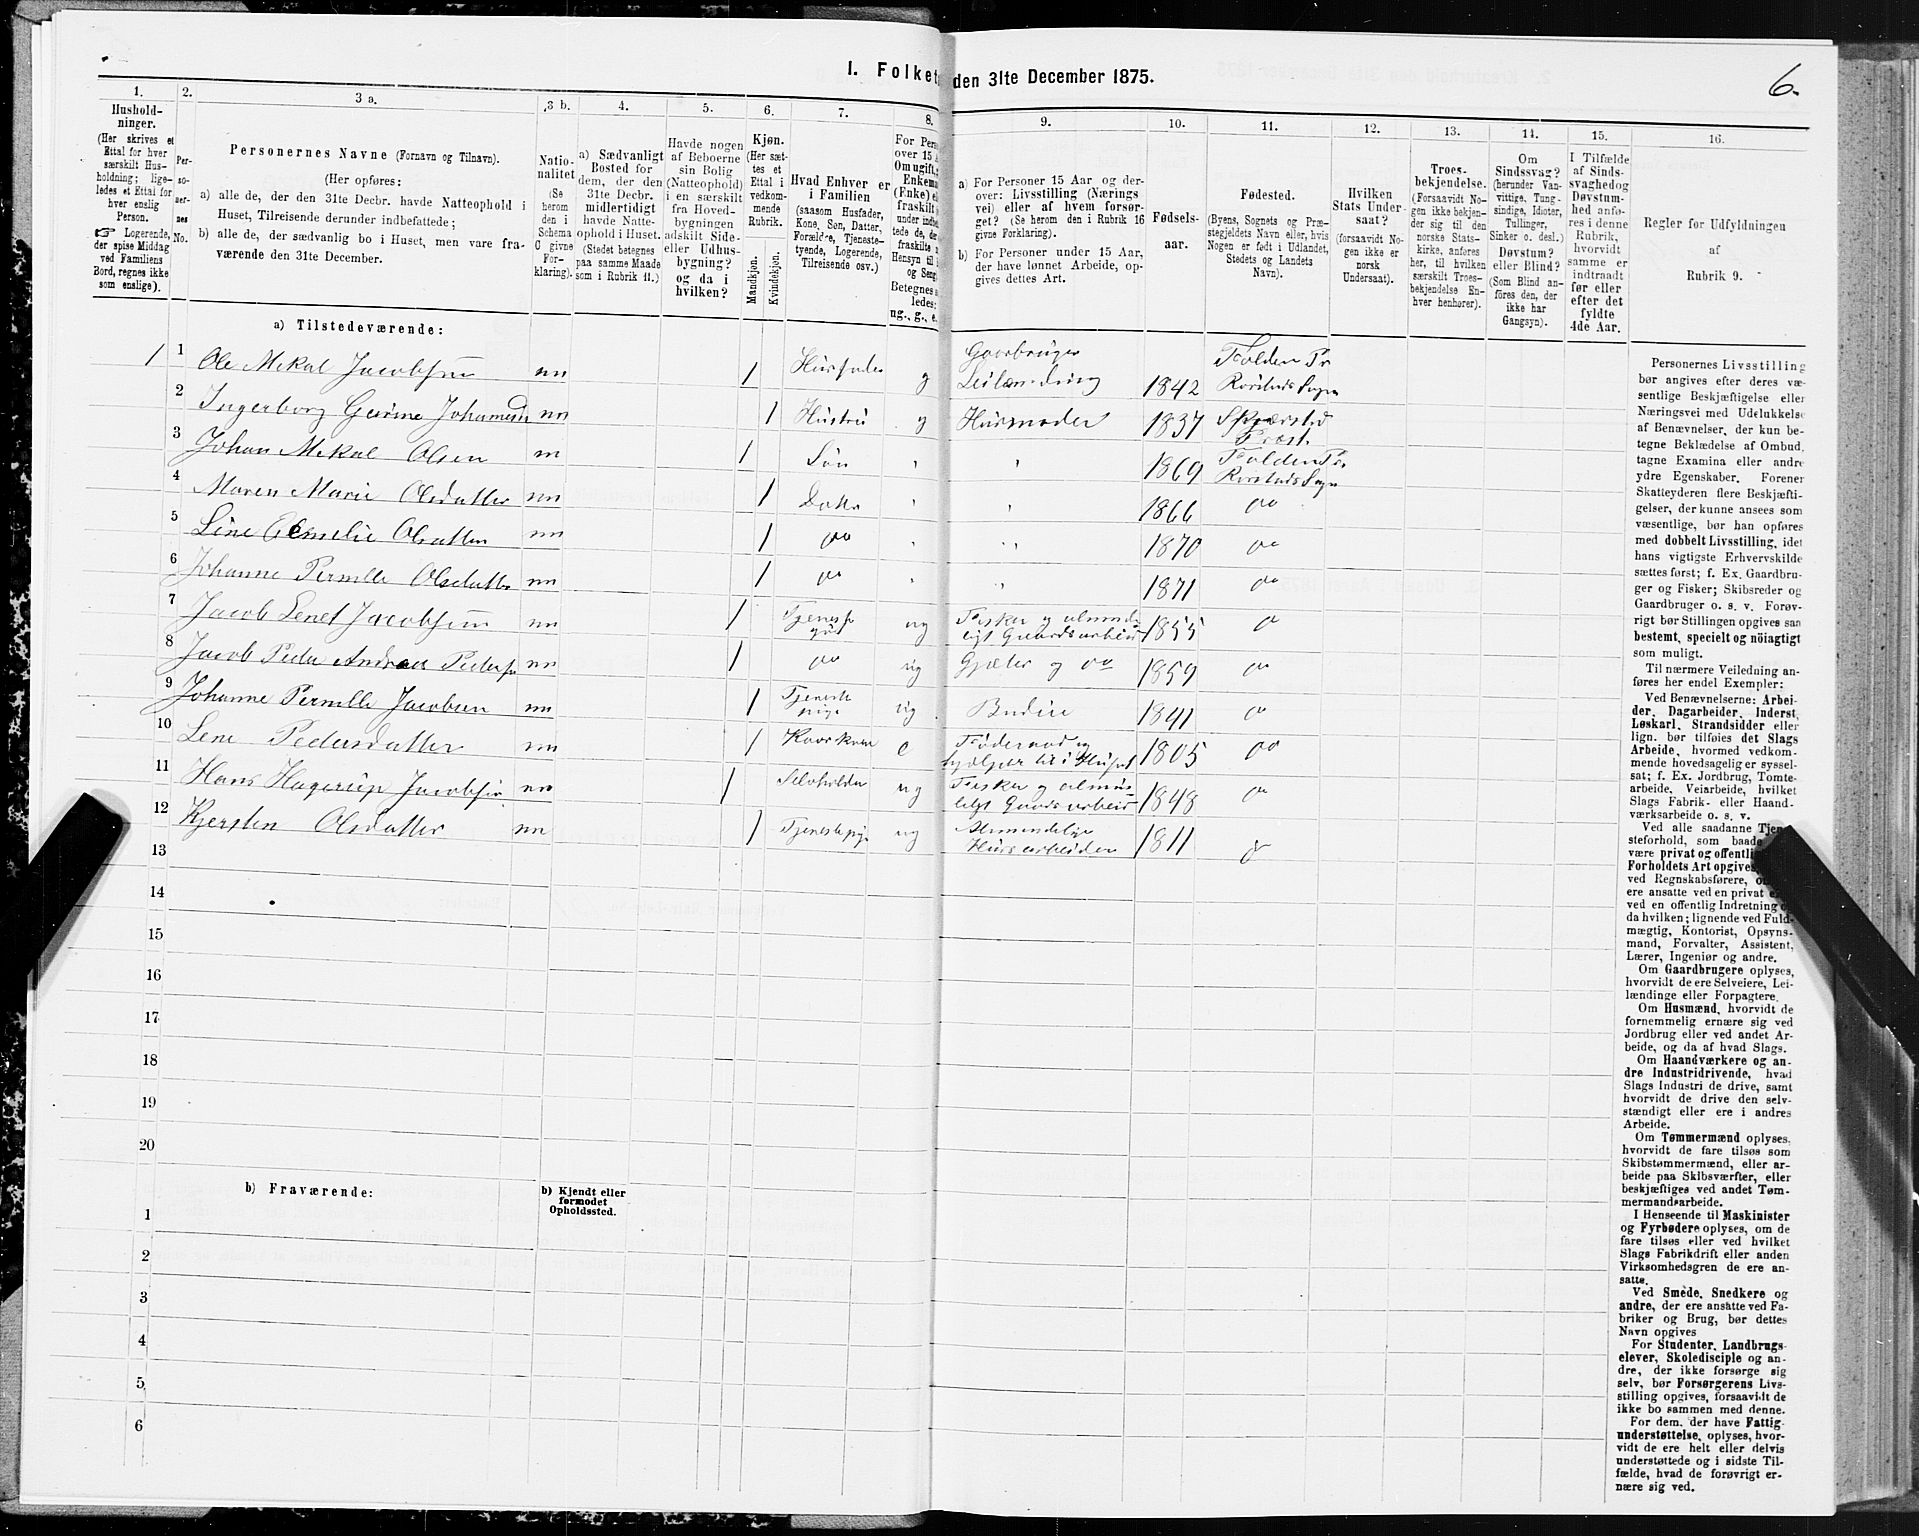 I. Folket den 31te December 1875.
6.
1.
Hushold-
ninger.
(Her skrives et
Ettal for hver
særskilt Hus-
holdning; lige-
ledes et Ettal for
hver enslig
Person.
☞ Logerende,
der spise Middag
ved Familiens
Bord, regnes ikke
som enslige).
2.
Per-
so-
ner-
nes
No.
3 a.
Personernes Navne (Fornavn og Tilnavn).
(Her opføres:
a) alle de, der den 31te Decbr. havde Natteophold i
Huset, Tilreisende derunder indbefattede;
b) alle de, der sædvanlig bo i Huset, men vare fra-
værende den 31te December.
3 b.
Natio-
nalitet
(Se
herom
den i
Schema
C givne
For-
klaring).
4.
a) Sædvanligt
Bosted for
dem, der den
31te Decbr.
midlertidigt
havde Natte-
ophold i Huset.
(Stedet betegnes
paa samme Maade
som i Rubrik 11.)
5.
Havde nogen
af Beboerne
sin Bolig
(Natteophold)
i en særskilt
fra Hoved-
bygningen
adskilt Side-
eller Udhus-
bygning?
og da i
hvilken?
6.
Kjøn.
(Her sæt-
tes et
Ettal i
vedkom-
mende
Rubrik.
Mandkjøn.
Kvindekjøn.
7.
Hvad Enhver er
i Familien
(saasom Husfader,
Kone, Søn, Datter,
Forældre, Tjeneste-
tyende, Logerende,
Tilreisende osv.)
8.
For Pers
over 15 A
Om ugift,
Enkema
(Enke) el
fraskilt
under indbe
tede de, der
fraskilte
Hensyn til
og Seng
Betegnes
ledes:
ug., g., e.
9.
a) For Personer 15 Aar og der-
over: Livsstilling (Nærings
vei) eller af hvem forsør-
get? (Se herom den i Rubrik 16
givne Forklaring).
b) For Personer under 15 Aar,
der have lønnet Arbeide, op-
gives dettes Art.
10.
Fødsels-
aar.
11.
Fødested.
(Byens, Sognets og Præ-
stegjeldets Navn eller, hvis
Nogen er født i Udlandet,
Stedets og Landets
Navn).
12.
Hvilken
Stats Under-
saat?
(forsaavidt No-
gen ikke er
norsk
Undersaat).
13.
Troes-
bekjendelse.
(Forsaavidt No-
gen ikke bekjen-
der sig til den
norske Stats-
kirke, anføres
her, til hvilken
særskilt Troes-
bekjendelse En-
hver henhører).
14.
Om
Sindssvag?
(herunder Van-
vittige, Tung-
sindige, Idioter,
Tullinger,
Sinker o. desl.)
Døvstum?
eller Blind?
(Som Blind an-
føres den, der
ikke har
Gangsyn).
15.
I Tilfælde
af Sinds-
svaghedog
Døvstum-
hed anfø-
res i denne
Rubrik,
hvorvidt
samme er
indtraadt
før eller
efter det
fyldte
4de Aar.
16.
Regler for Udfyldningen
af
Rubrik 9.
a) Tilstedeværende:
1 1 Ole Mekal Jacobsen nn 1 Husfader g Gaarbruger Leilænding 1842 Folden Pr Rørstads Sogn
2 Ingerborg Gurine Johannesd nn 1 Hustru g Husmoder 1837 Skjærstad Præst.
3 Johan Mekal Olsen nn 1 Søn " " 1869 Folden Pr. Rørstads Sogn
4 Maren Marie Olsdatter nn 1 Datter " " 1866 oo
5 Line Emelie Olsdatter nn 1 oo " " 1870 oo
6 Johanne Pernille Olsdatter nn 1 oo " " 1871 oo
7 Jacob Jacobsen nn 1 Tjeneste gut ug Fisker og almindeligt Gaardsarbeide 1855 oo
8 Jacob Peder Andreas Peders nn 1 oo ug Gjæter og oo 1859 oo
9 Johanne Pernille Jacobsen nn 1 Tjeneste pige ug Budeie 1841 oo
10 Lene Pedersdatter nn 1 Kaarkone e Føderaad og hjælper til i Huset 1805 oo
11 Hans Hagerup Jacobsen nn 1 ug Fisker og almindeligt Gaardsarbeide 1848 oo
12 Kjersten Olsdatter nn 1 Tjenestepige ug Almindelige Husarbeiden 1811 oo
13
14
15
16
17
18
19
20
b) Fraværende:
b) Kjendt eller
formodet
Opholdssted.
1
2
3
4
5
6
Personernes Livsstilling
bør angives efter deres væ-
sentlige Beskjæftigelse eller
Næringsvei med Udelukkelse
af Benævnelser, der kun be-
tegne Beklædelse af Ombud,
tagne Examina eller andre
ydre Egenskaber. Forener
Skatteyderen flere Beskjæfti-
gelser, der kunne ansees som
væsentlige, bør han opføres
med dobbelt Livsstilling, idet
hans vigtigste Erhvervskilde
sættes først; f. Ex. Gaardbru-
ger og Fisker; Skibsreder og
Gaardbruger o. s. v. Forøv-
rigt bør Stillingen opgives saa
bestemt, specielt og nöiagtigt
som muligt.
Til nærmere Veiledning an-
føres her endel Exempler:
Ved Benævnelserne: Arbei-
der, Dagarbeider, Inderst,
Løskarl, Strandsidder eller
lign. bør tilføies det Slags
Arbeide, hvormed vedkom-
mende hovedsagelig er syssel-
sat; f. Ex. Jordbrug, Tomte-
arbeide, Veiarbeide, hvilket
Slags Fabrik- eller Haand-
værksarbeide o. s. v.
Ved alle saadanne Tjen
steforhold, som baade
være privat og offentli
Forholdets Art opgives,
ved Regnskabsførere,
ere ansatte ved en privat e
ved en offentlig Indretning
da hvilken; lignende ved Fuld-
mægtig, Kontorist, Opsyns-
mand, Forvalter, Assistent,
Lærer, Ingeniør og andre.
Om Gaardbrugere oplyses,
hvorvidt de ere Selveiere, Lei-
lændinge eller Forpagtere.
Om Husmænd, hvorvidt de
fornemmelig ernære sig ved
Jordbrug eller ved andet Ar-
beide, og da af hvad Slags.
Om Haandværkere og an-
dre Industridrivende, hvad
Slags Industri de drive, samt
hvorvidt de drive den selv-
stændigt eller ere i andres
Arbeide.
Om Tømmermænd oplyses,
hvorvidt de fare tilsøs som
Skibstømmermænd, eller ar-
beide paa Skibsværfter, eller
beskjæftiges ved andet Tøm-
mermandsarbeide.
I Henseende til Maskinister
og Fyrbødere oplyses, om de
fare tilsøs eller ved hvilket
Slags Fabrikdrift eller anden
Virksomhedsgren de ere an-
satte.
Ved Smede, Snedkere og
andre, der ere ansatte ved Fa-
briker og Brug, bør dettes
Navn opgives
For Studenter, Landbrugs-
elever, Skoledisciple og an-
dre, der ikke forsørge sig
selv, bør Forsørgerens Livs-
stilling opgives, forsaavidt de
ikke bo sammen med denne.
For dem, der have Fattig-
understøttelse, oplyses, hvor-
vidt de ere helt eller delvis
understøttede og i sidste Til-
fælde, hvad de forøvrigt er-
nære sig ved.